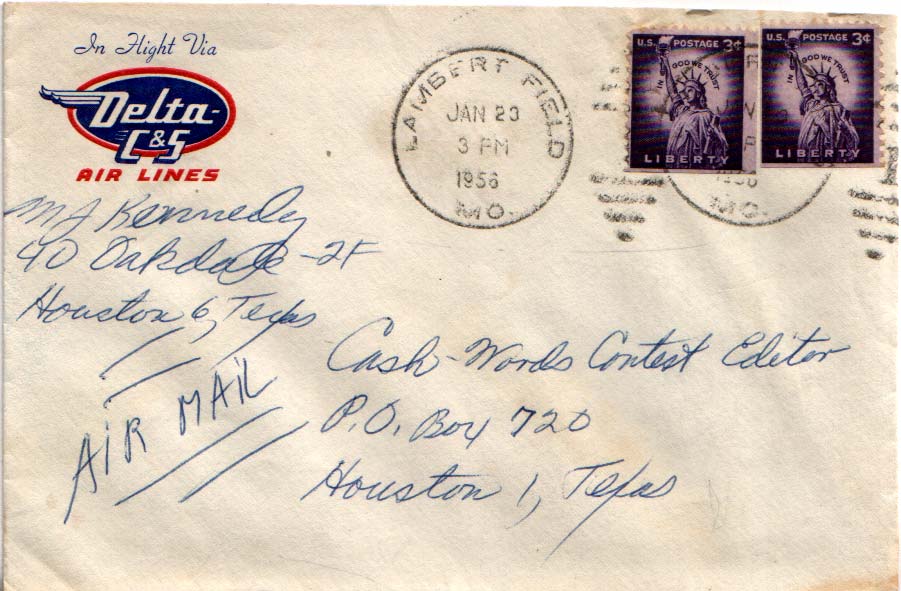 In Flight Via
Delta-
C&S
AIR LINES
LAMBERT FIELD
JAN 23
3 PM
1956
MO.
U.S. POSTAGE 3¢
IN GOD WE TRUST
LIBERTY
U.S. POSTAGE 3¢
IN GOD WE TRUST
LIBERTY
1956
MO.
MJ Kennedy
40 Oakdale -2F
Houston 6, Texas
AIR MAIL
Cash-Words Contest Editor
P.O. Box 720
Houston 1, Texas